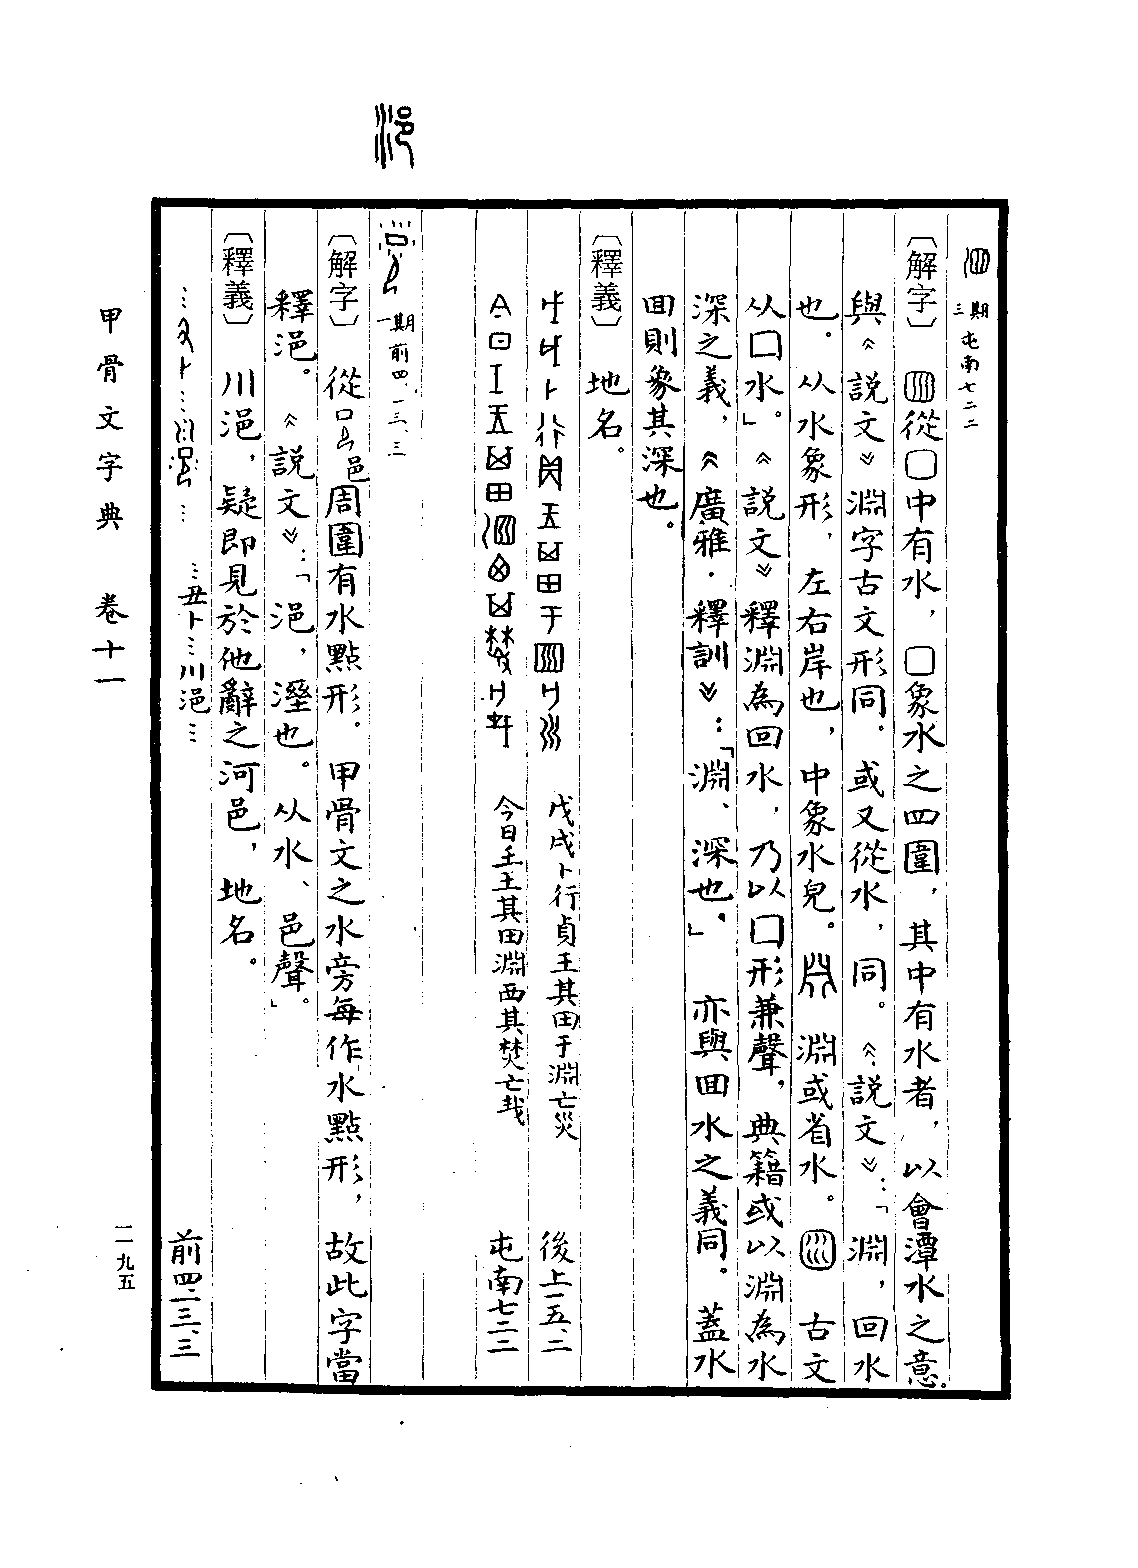 三期 屯南七二二
〔解字〕從囗中有水，囗象水之四圍，其中有水者，以會潭水之意，
與《説文》淵字古文形同。或又從水，同。《説文》：「淵，回水
也。从水象形，左右岸也，中象水皃。淵或省水。古文
从囗水。」《説文》釋淵為回水，乃以囗形兼聲，典籍或以淵為水
深之義，《廣雅·釋訓》：「淵、深也，」亦與回水之義同。蓋水
回則象其深也。
〔釋義〕地名。
戊戌卜行貞王其田于淵亡災 後上一五、二
今日壬王其田淵西其焚亡𢦏 屯南七二二
一期 前四、一三、三
〔解字〕從邑周圍有水點形。甲骨文之水旁每作水點形，故此字當
釋浥。《説文》：「浥，溼也。从水、邑聲。」
〔釋義〕川浥，疑即見於他辭之河邑，地名。
…丑卜…川浥… 前四、一三、三
甲骨文字典 卷十一
一一九五